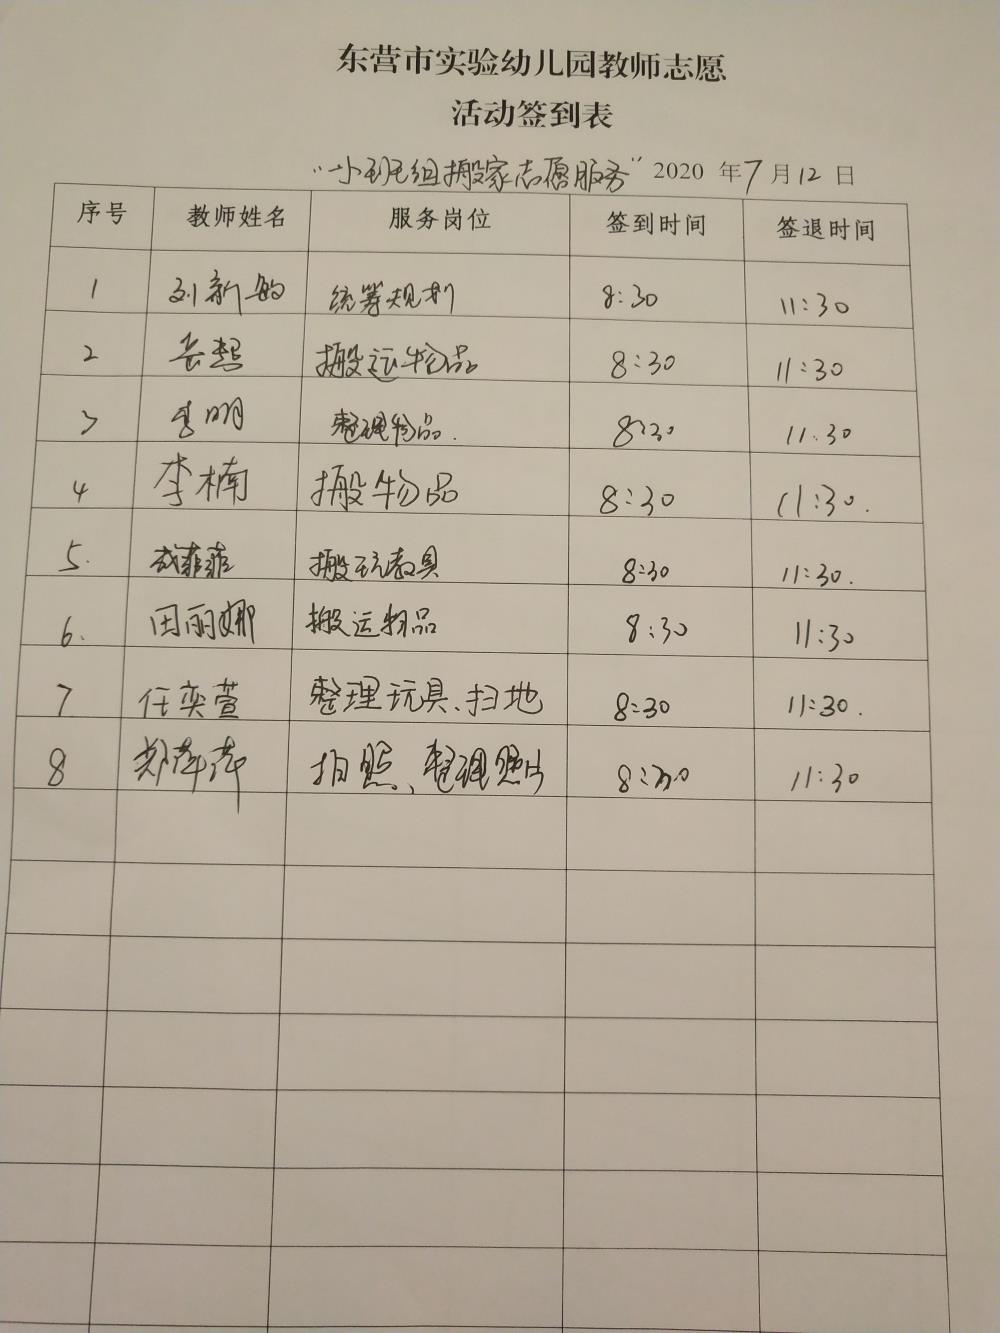 东营市实验幼儿园教师志愿
活动签到表
“小班组搬家志愿服务” 2020 年 7 月 12 日
序号 教师姓名 服务岗位 签到时间 签退时间
1 刘新敏 统筹规划 8:30 11:30
2 搬运物品 8:30 11:30
3 李明 整理物品. 8:30 11.30
4 李楠 搬物品 8:30 11:30.
5. 成菲菲 搬玩教具 8:30 11:30.
6. 田丽娜 搬运物品 8:30 11:30
7 任奕萱 整理玩具、扫地 8:30 11:30.
8 郑萍萍 拍照、整理照片 8:30 11:30